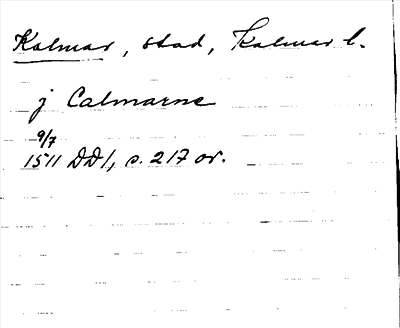 Kalmar, stad, Kalmar l.
j Calmarne
9/7
1511 DD1, s. 217 or.